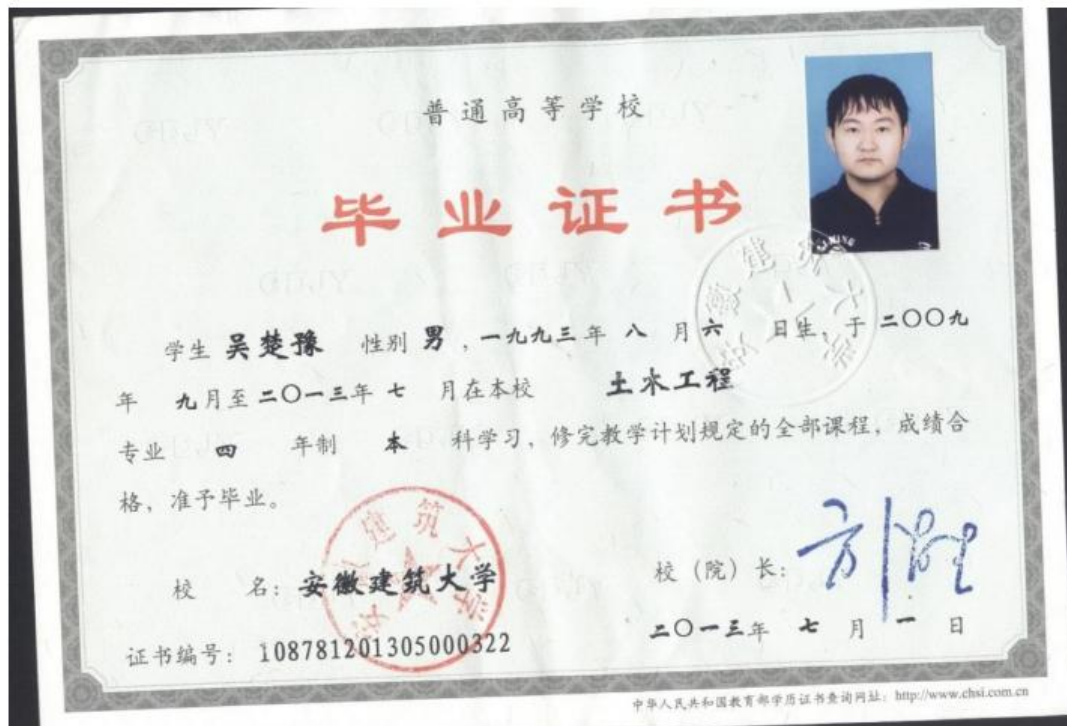 普通高等学校
毕业证书
学生 吴楚豫 性别 男，一九九三年 八 月 六 日生，于 二〇〇九
年 九月至二〇一三年 七 月在本校 土木工程
专业 四 年制 本 科学习，修完教学计划规定的全部课程，成绩合
格，准予毕业。
安徽建筑大学
校 名：安徽建筑大学
校（院）长：
二〇一三年 七 月 一 日
证书编号：108781201305000322
中华人民共和国教育部学历证书查询网址：http://www.chsi.com.cn